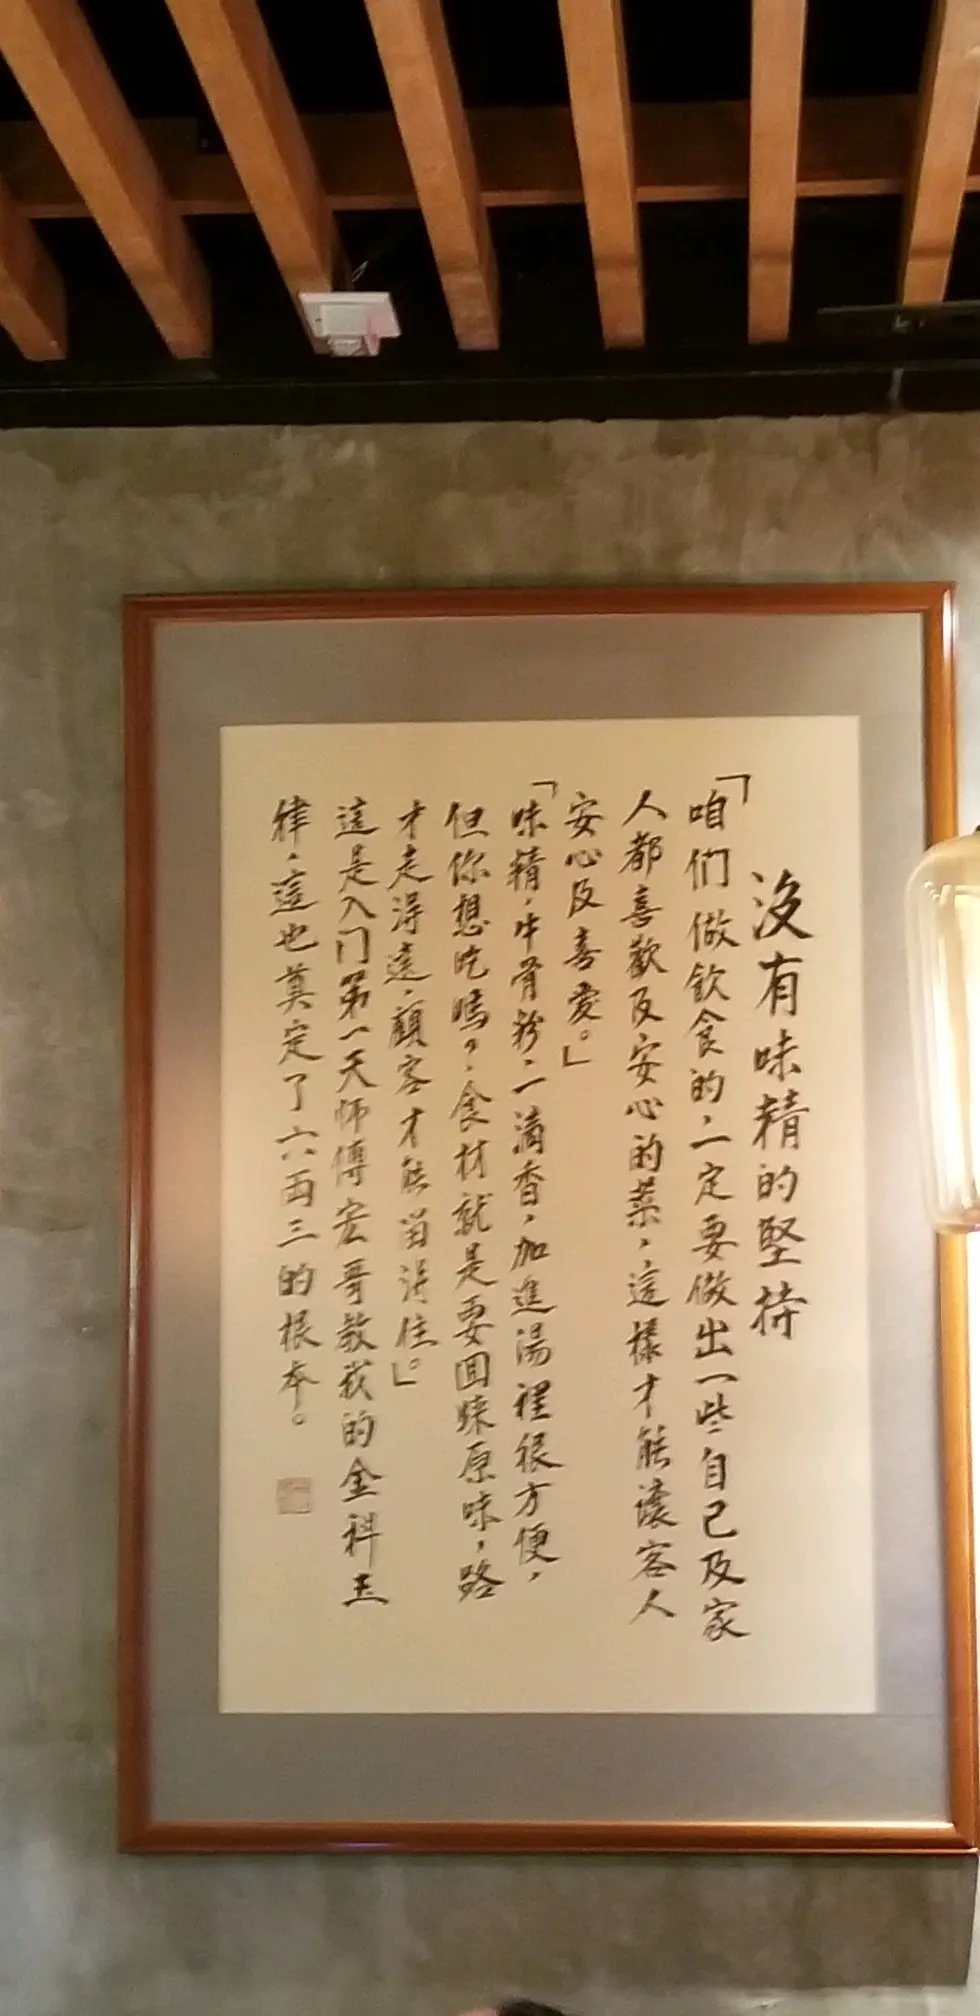 沒有味精的堅持
「咱们做飲食的,一定要做出一些自己及家
人都喜歡及安心的菜,這樣才能讓客人
安心及喜愛。」
「味精,牛骨粉,一滴香,加進湯裡很方便,
但你想吃嗎?食材就是要回味原味,路
才走得遠,顧客才能留得住。」
這是入门第一天師傅宏哥教我的金科玉
律,這也奠定了六両三的根本。